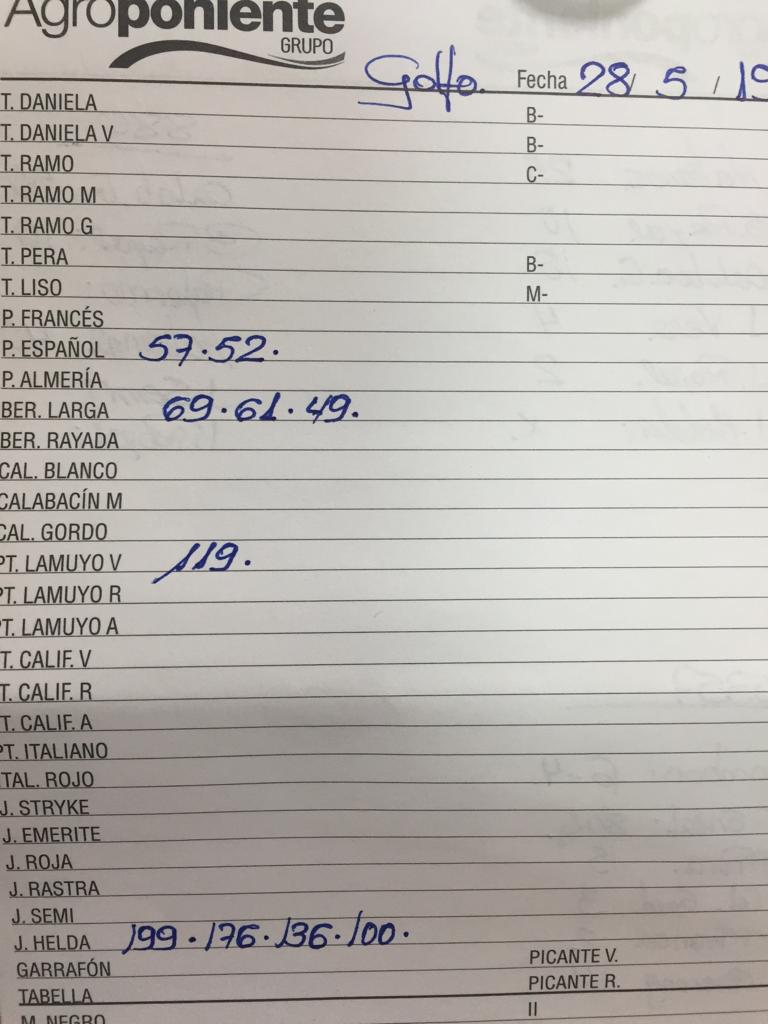 Agroponiente
GRUPO
Golfo. Fecha 28/ 5 / 19
T. DANIELA B-
T. DANIELA V B-
T. RAMO C-
T. RAMO M
T. RAMO G
T. PERA B-
T. LISO M-
P. FRANCÉS
P. ESPAÑOL 57.52.
P. ALMERÍA
BER. LARGA 69.61.49.
BER. RAYADA
CAL. BLANCO
CALABACÍN M
CAL. GORDO
PT. LAMUYO V 119.
PT. LAMUYO R
PT. LAMUYO A
T. CALIF. V
T. CALIF. R
T. CALIF. A
PT. ITALIANO
TAL. ROJO
J. STRYKE
J. EMERITE
J. ROJA
J. RASTRA
J. SEMI
J. HELDA 199.176.136.100.
GARRAFÓN PICANTE V.
TABELLA PICANTE R.
M. NEGRO II